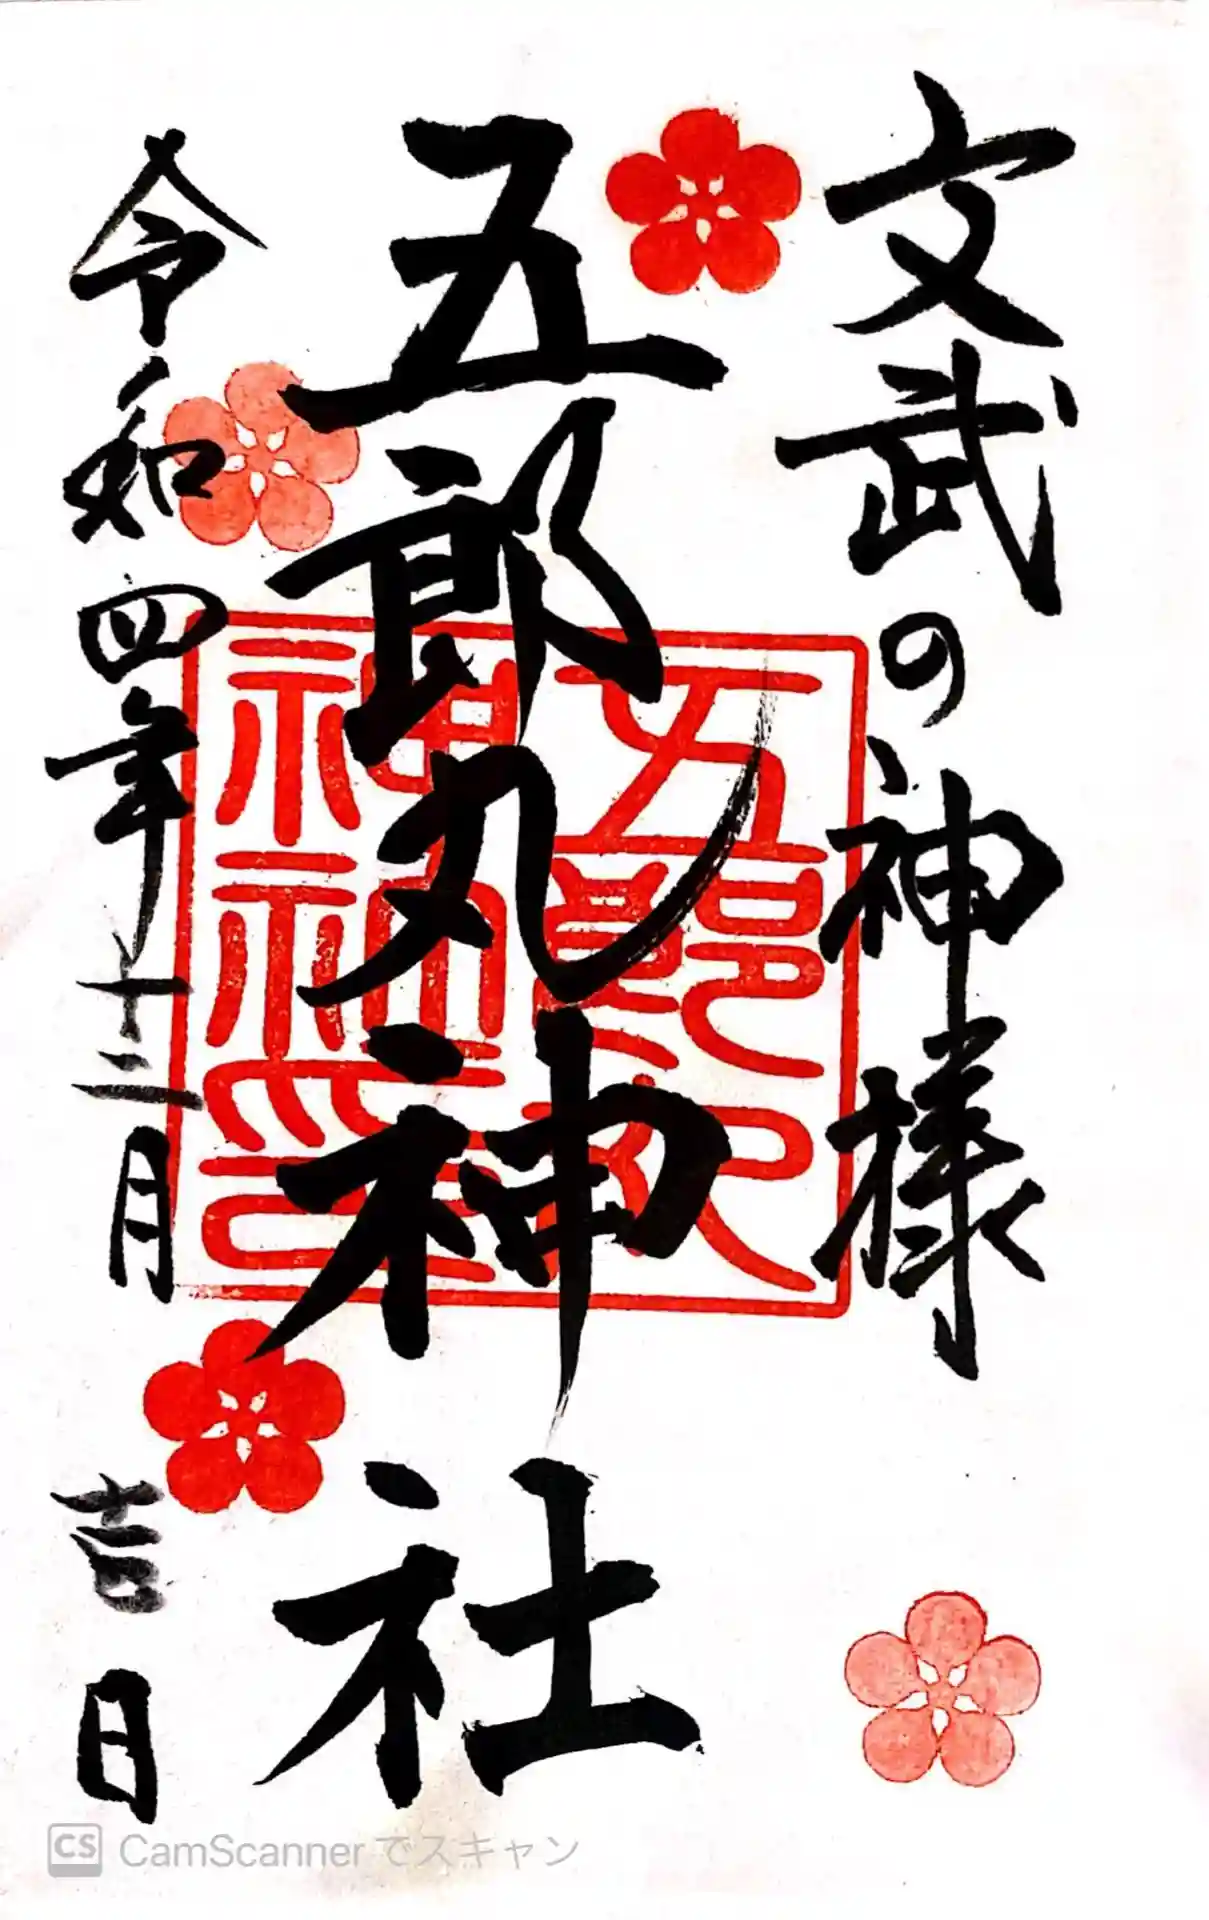 文武の神様
五郎丸神社
令和四年十二月 吉日
CS CamScanner でスキャン